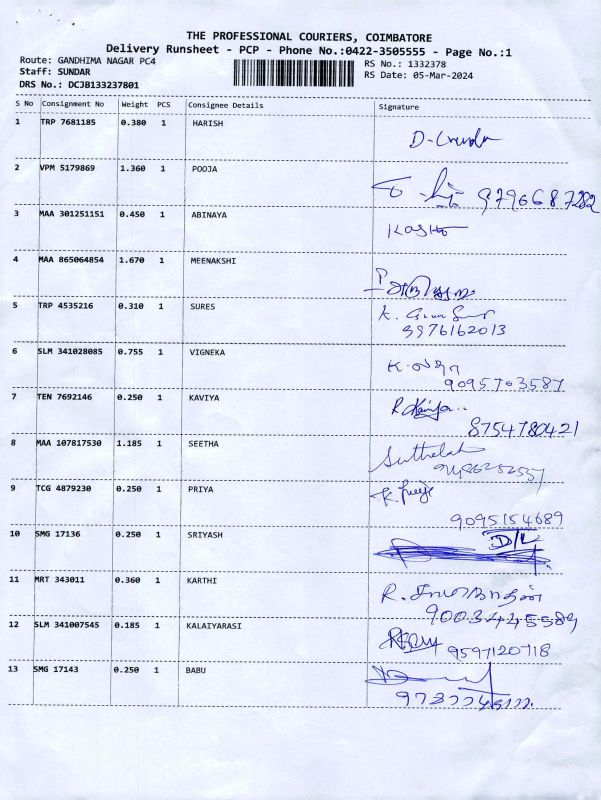 THE PROFESSIONAL COURIERS, COIMBATORE
Delivery Runsheet - PCP - Phone No.:0422-3505555 - Page No.:1
Route: GANDHIMA NAGAR PC4 RS No.: 1332378
Staff: SUNDAR RS Date: 05-Mar-2024
DRS No.: DCJB133237801
S No Consignment No Weight PCS Consignee Details Signature
1 TRP 7681185 0.380 1 HARISH
2 VPM 5179869 1.360 1 POOJA
9796687282
3 MAA 301251151 0.450 1 ABINAYA
4 MAA 865064854 1.670 1 MEENAKSHI
5 TRP 4535216 0.310 1 SURES
9976162013
6 SLM 341028085 0.755 1 VIGNEKA
9095703587
7 TEN 7692146 0.250 1 KAVIYA
8754780421
8 MAA 107817530 1.185 1 SEETHA
9 TCG 4879230 0.250 1 PRIYA
9095154689
10 SMG 17136 0.250 1 SRIYASH
D/L
11 MRT 343011 0.360 1 KARTHI
9003445589
12 SLM 341007545 0.185 1 KALAIYARASI
9597120718
13 SMG 17143 0.250 1 BABU